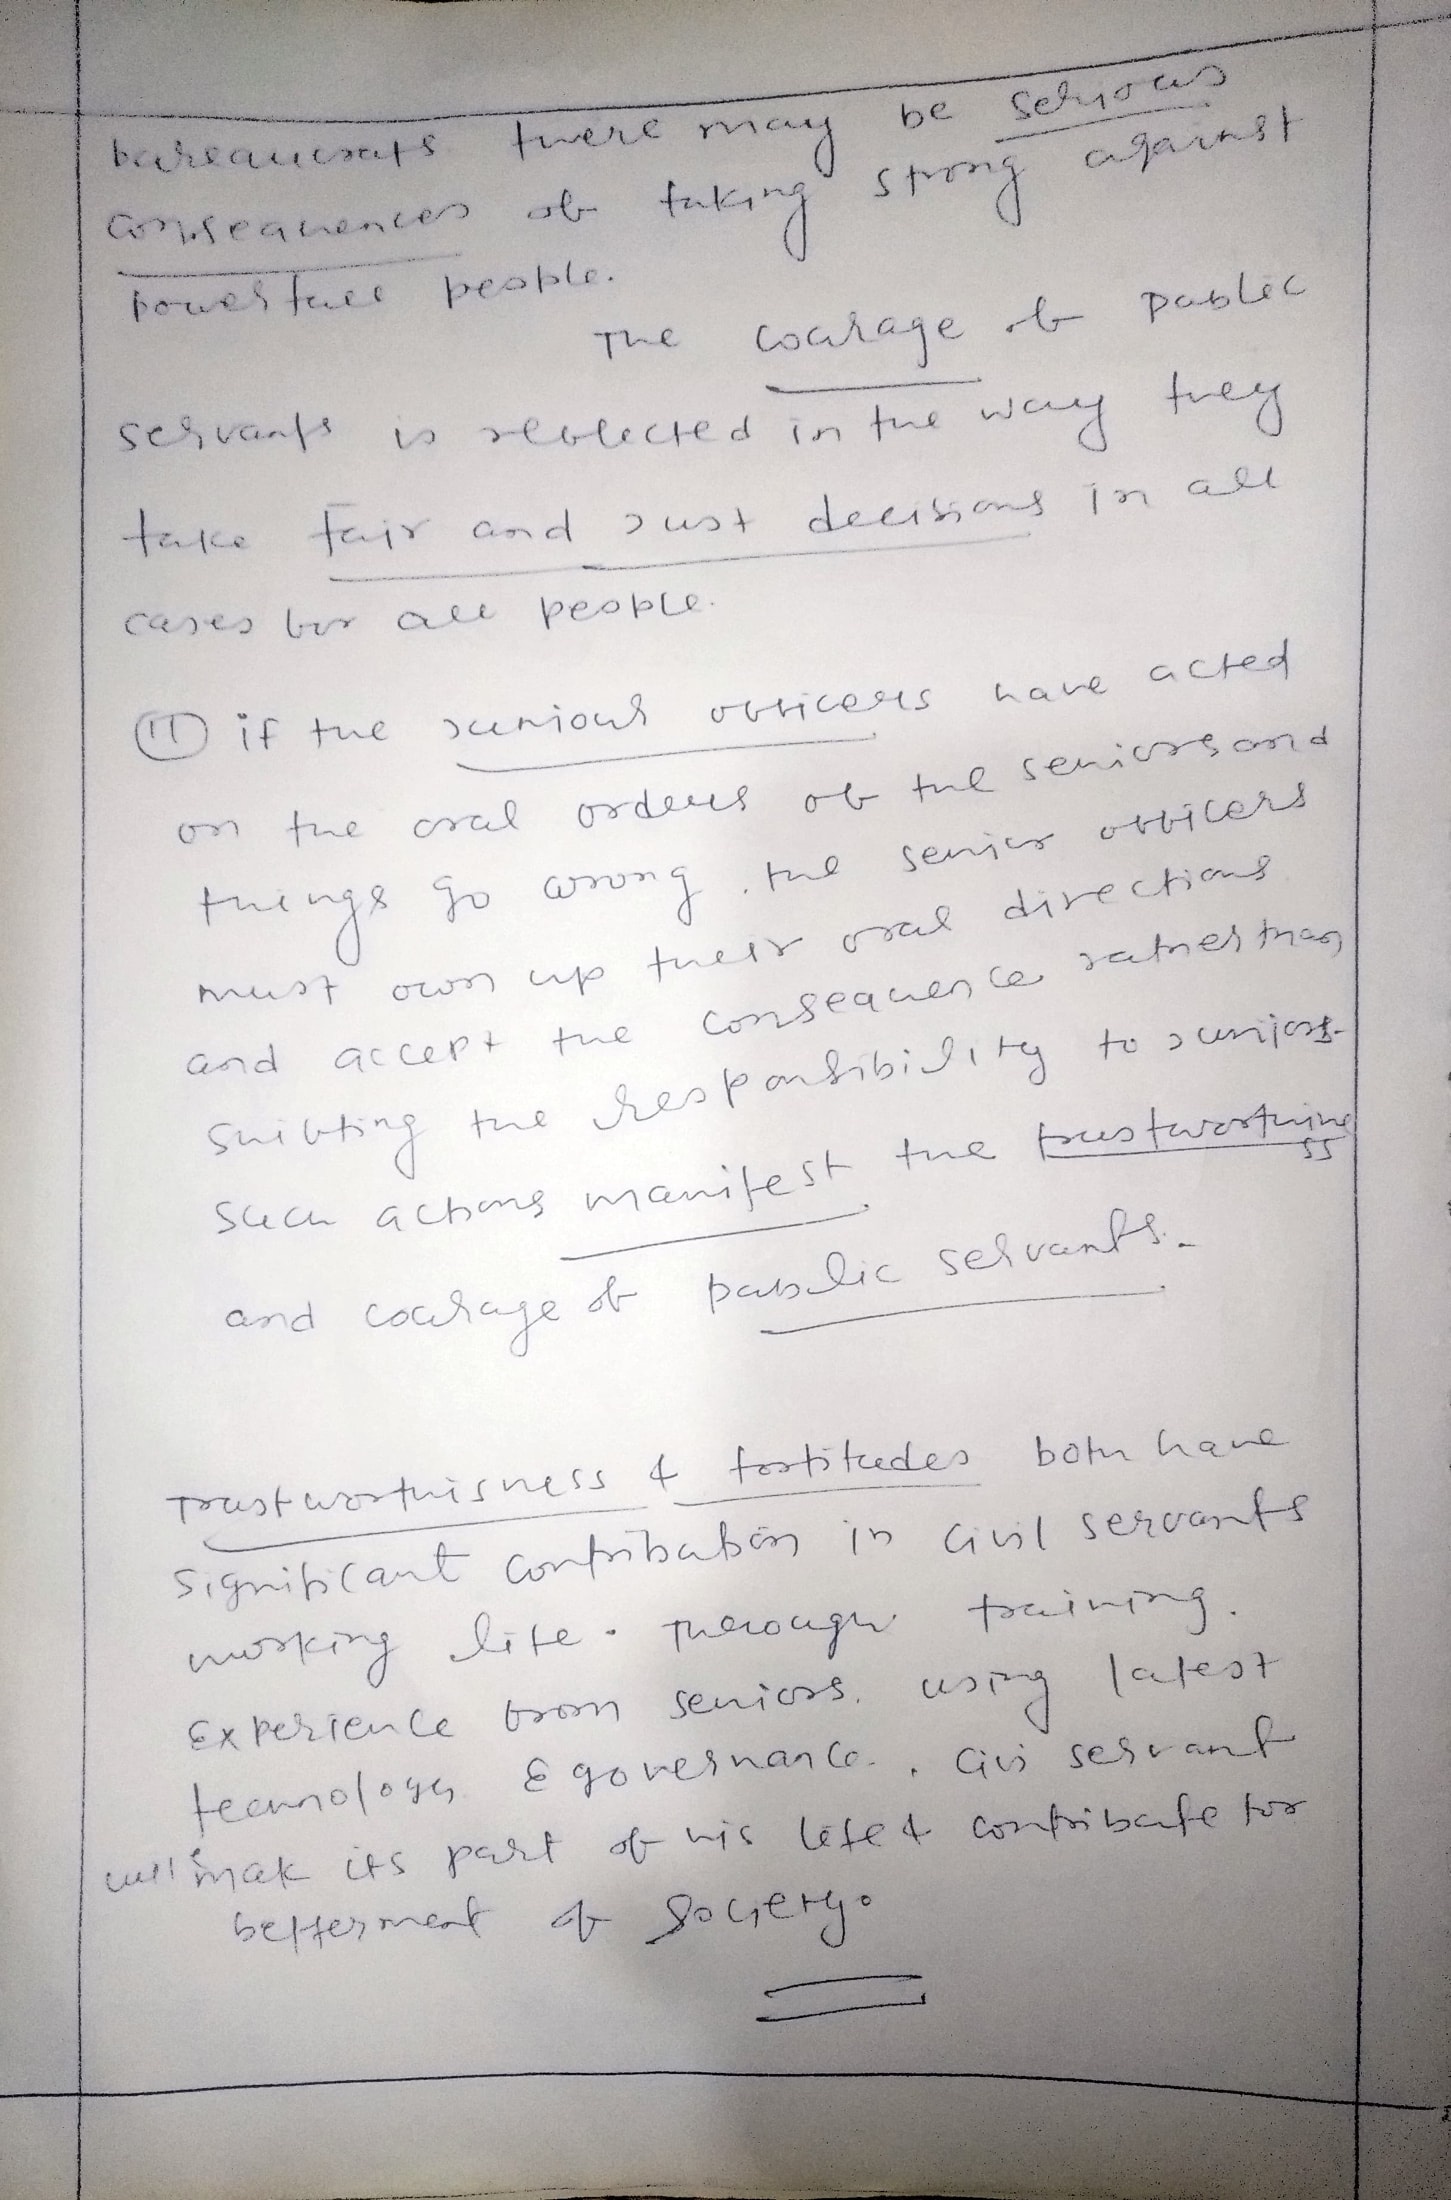 bureaucrats there may be serious
consequences of taking strong against
powerfull people.
The courage of public
servants is reflected in the way they
take fair and just decisions in all
cases for all people.
(II) if the juniour officers have acted
on the oral orders of the seniors and
things go wrong, the senior officers
must own up their oral directions
and accept the consequence rather than
shifting the responsibility to juniors.
Such actions manifest the trustworthine
ss
and courage of public servants.
Trustworthisness & fortitudes both have
significant contribution in civil servants
working life. Through training,
Experience from seniors, using latest
technology E governance, civi servant
will mak its part of his life & contribute for
betterment of society.